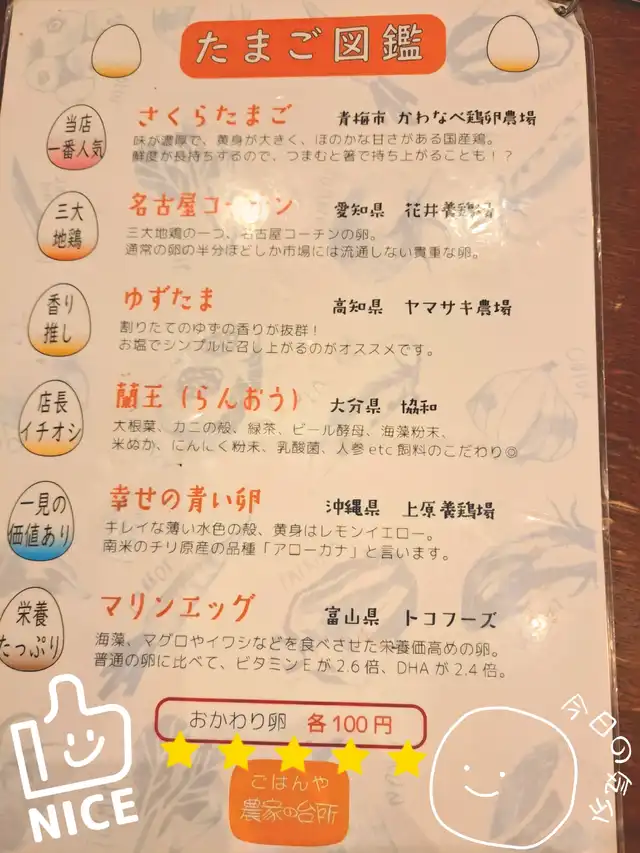 たまご図鑑
当店
一番人気
さくらたまご 青梅市 かわなべ鶏卵農場
味が濃厚で、黄身が大きく、ほのかな甘さがある国産鶏。
鮮度が長持ちするので、つまむと箸で持ち上がることも！？
三大
地鶏
名古屋コーチン 愛知県 花井養鶏場
三大地鶏の一つ、名古屋コーチンの卵。
通常の卵の半分ほどしか市場には流通しない貴重な卵。
香り
推し
ゆずたま 高知県 ヤマサキ農場
割りたてのゆずの香りが抜群！
お塩でシンプルに召し上がるのがオススメです。
店長
イチオシ
蘭王（らんおう） 大分県 協和
大根葉、カニの殻、緑茶、ビール酵母、海藻粉末、
米ぬか、にんにく粉末、乳酸菌、人参etc飼料のこだわり◎
一見の
価値あり
幸せの青い卵 沖縄県 上原養鶏場
キレイな薄い水色の殻、黄身はレモンイエロー。
南米のチリ原産の品種「アローカナ」と言います。
栄養
たっぷり
マリンエッグ 富山県 トコフーズ
海藻、マグロやイワシなどを食べさせた栄養価高めの卵。
普通の卵に比べて、ビタミンEが2.6倍、DHAが2.4倍。
おかわり卵 各100円
ごはんや
農家の台所
NICE
今日の気分